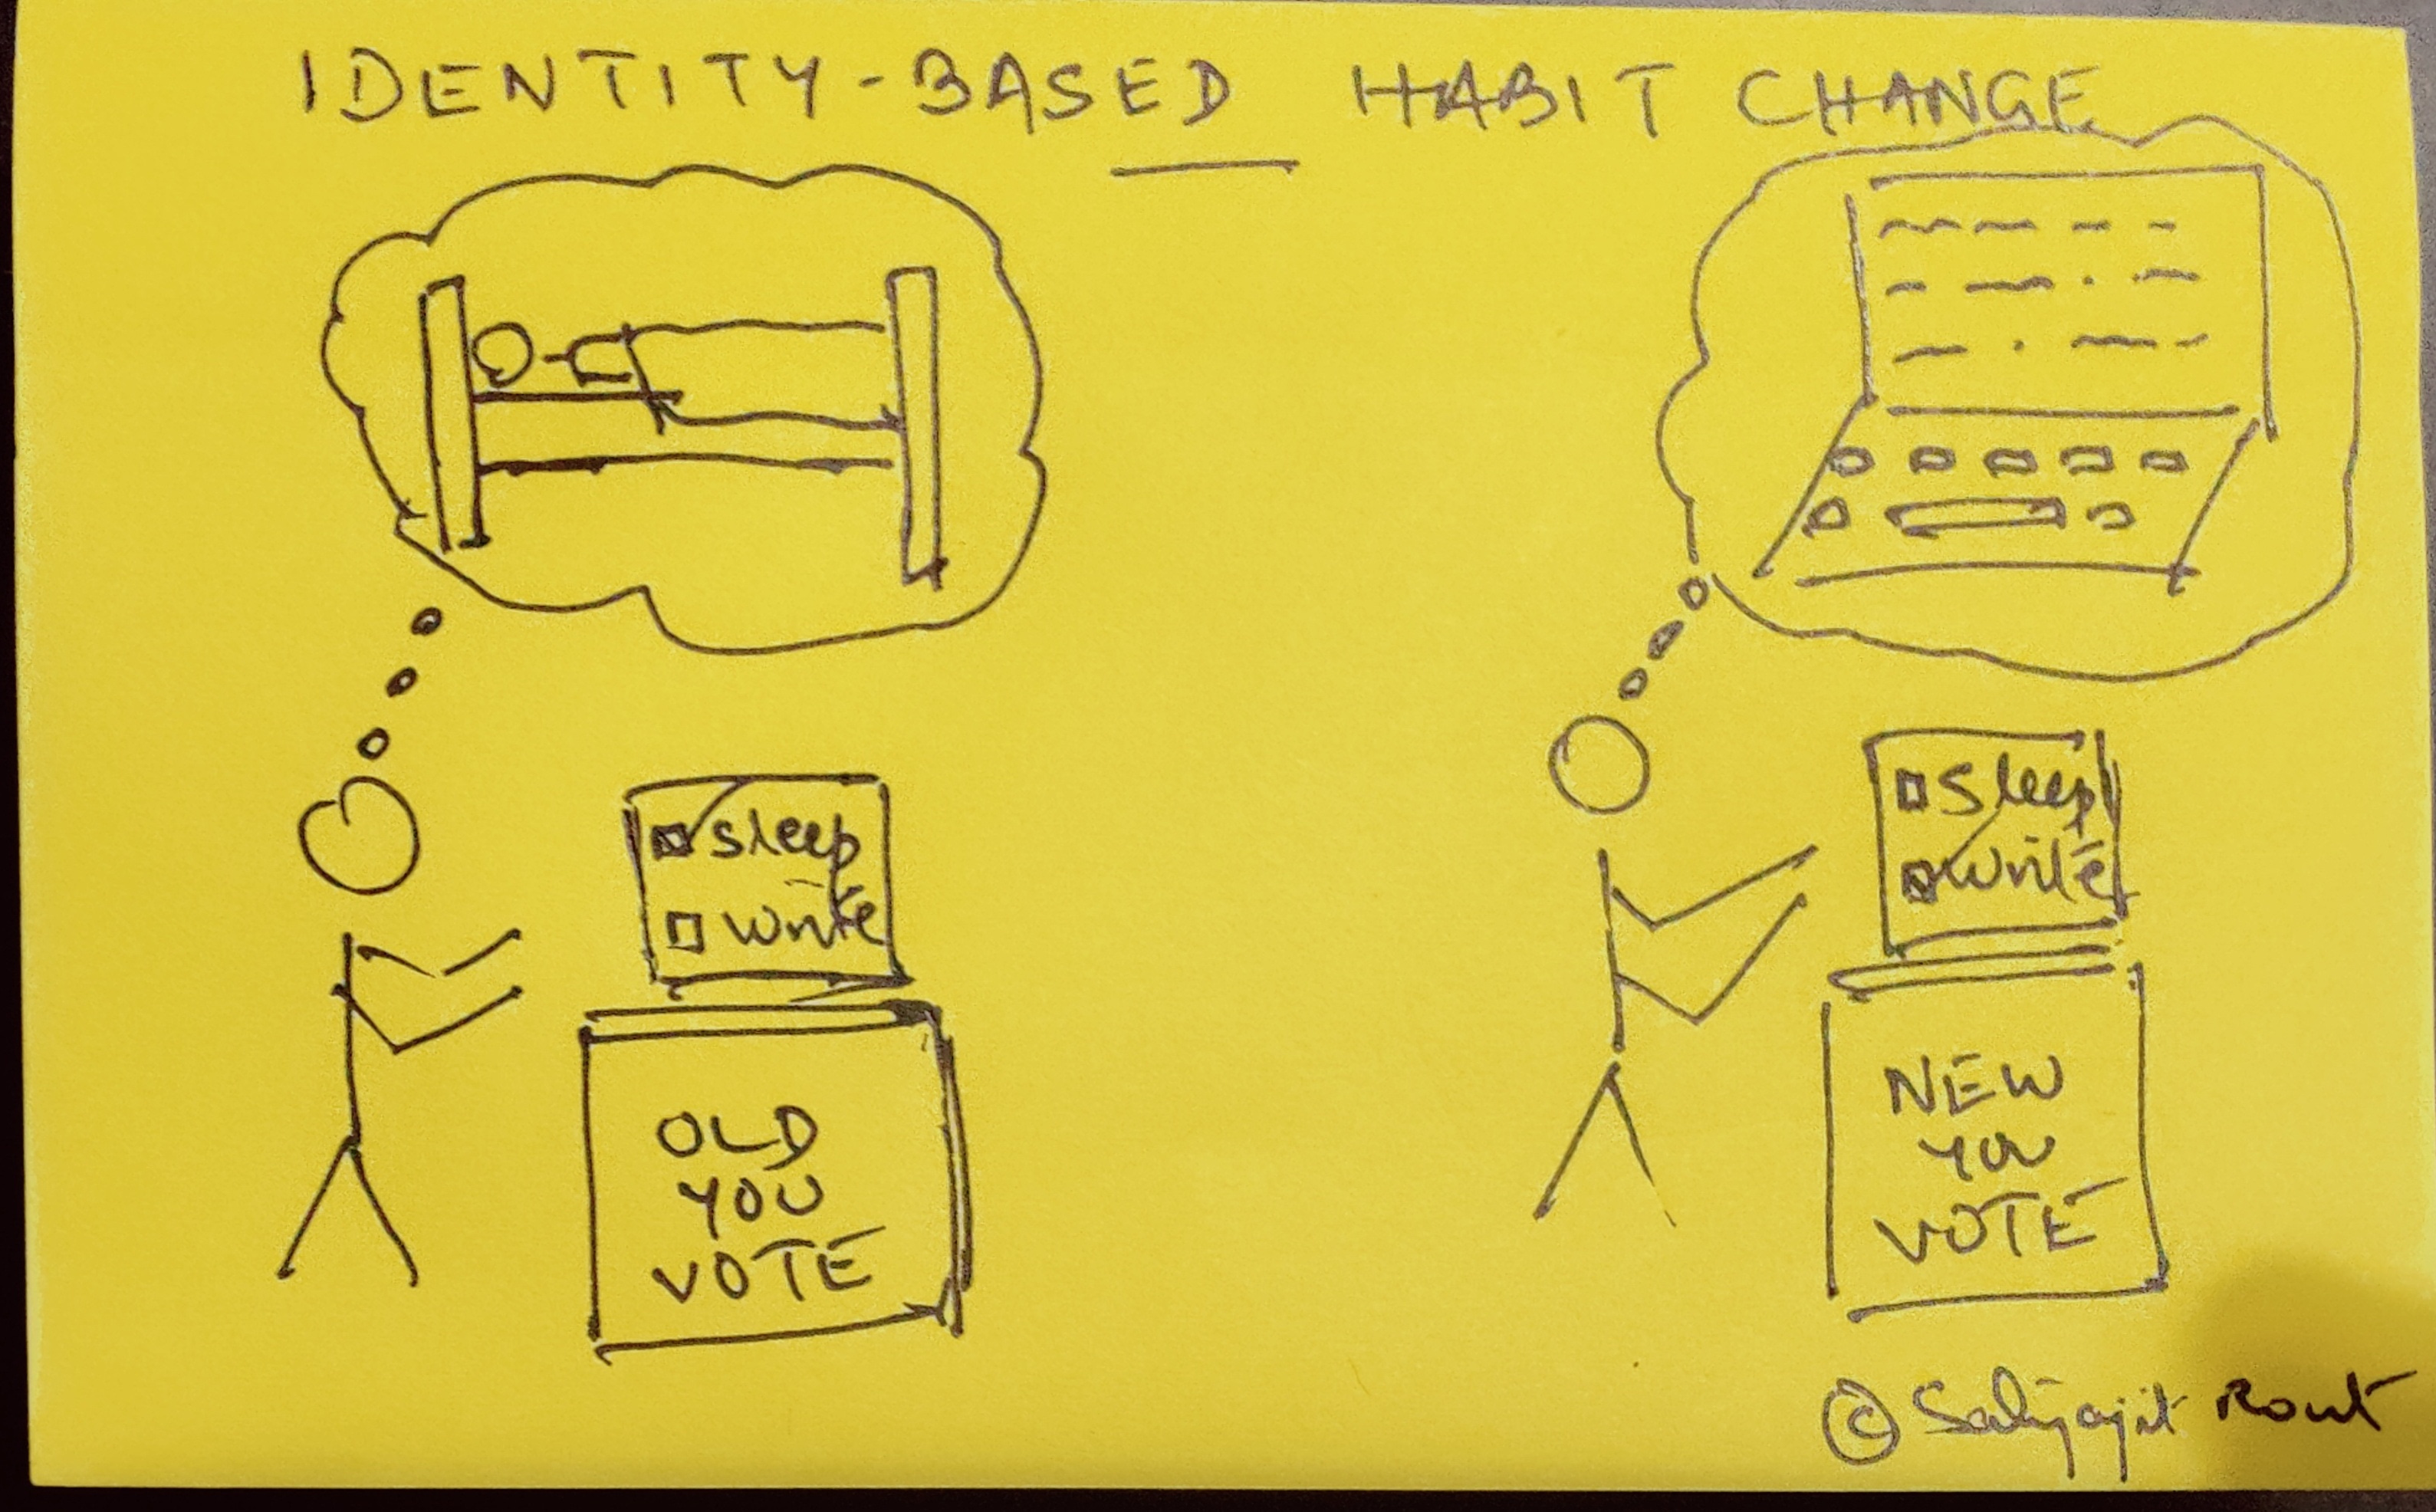 IDENTITY-BASED HABIT CHANGE
sleep
write
OLD
YOU
VOTE
sleep
write
NEW
YOU
VOTE
© Satyajit Rout